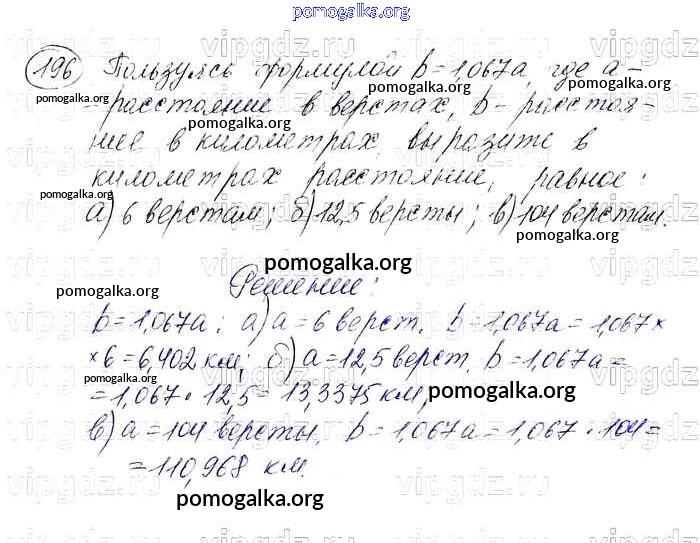 pomogalka.org
196 Пользуясь формулой b=1,067a, где a-
-расстояние в верстах, b- расстоя-
ние в километрах, выразите в
километрах расстояние, равное:
а) 6 верстам; б) 12,5 версты; в) 104 верстам.
Решение:
b=1,067a; а) a=6 верст, b=1,067a=1,067×
×6=6,402 км; б) a=12,5 верст, b=1,067a=
=1,067·12,5=13,3375 км,
в) a=104 версты, b=1,067a=1,067·104=
=110,968 км.
pomogalka.org
pomogalka.org
pomogalka.org
pomogalka.org
pomogalka.org
pomogalka.org
pomogalka.org
pomogalka.org
pomogalka.org
pomogalka.org
pomogalka.org